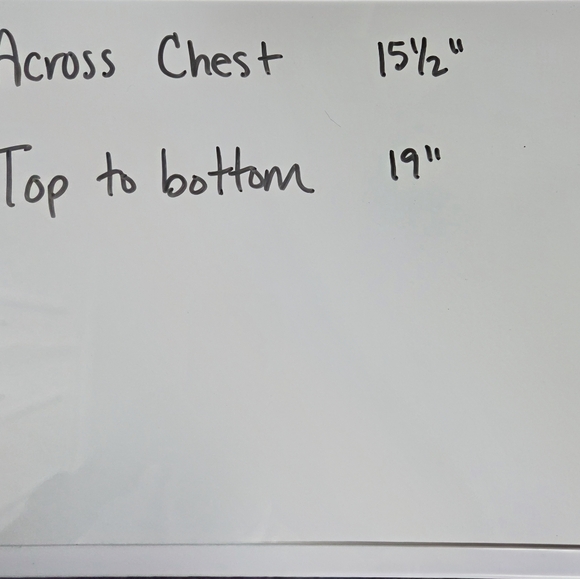 Across Chest 15½"
Top to bottom 19"